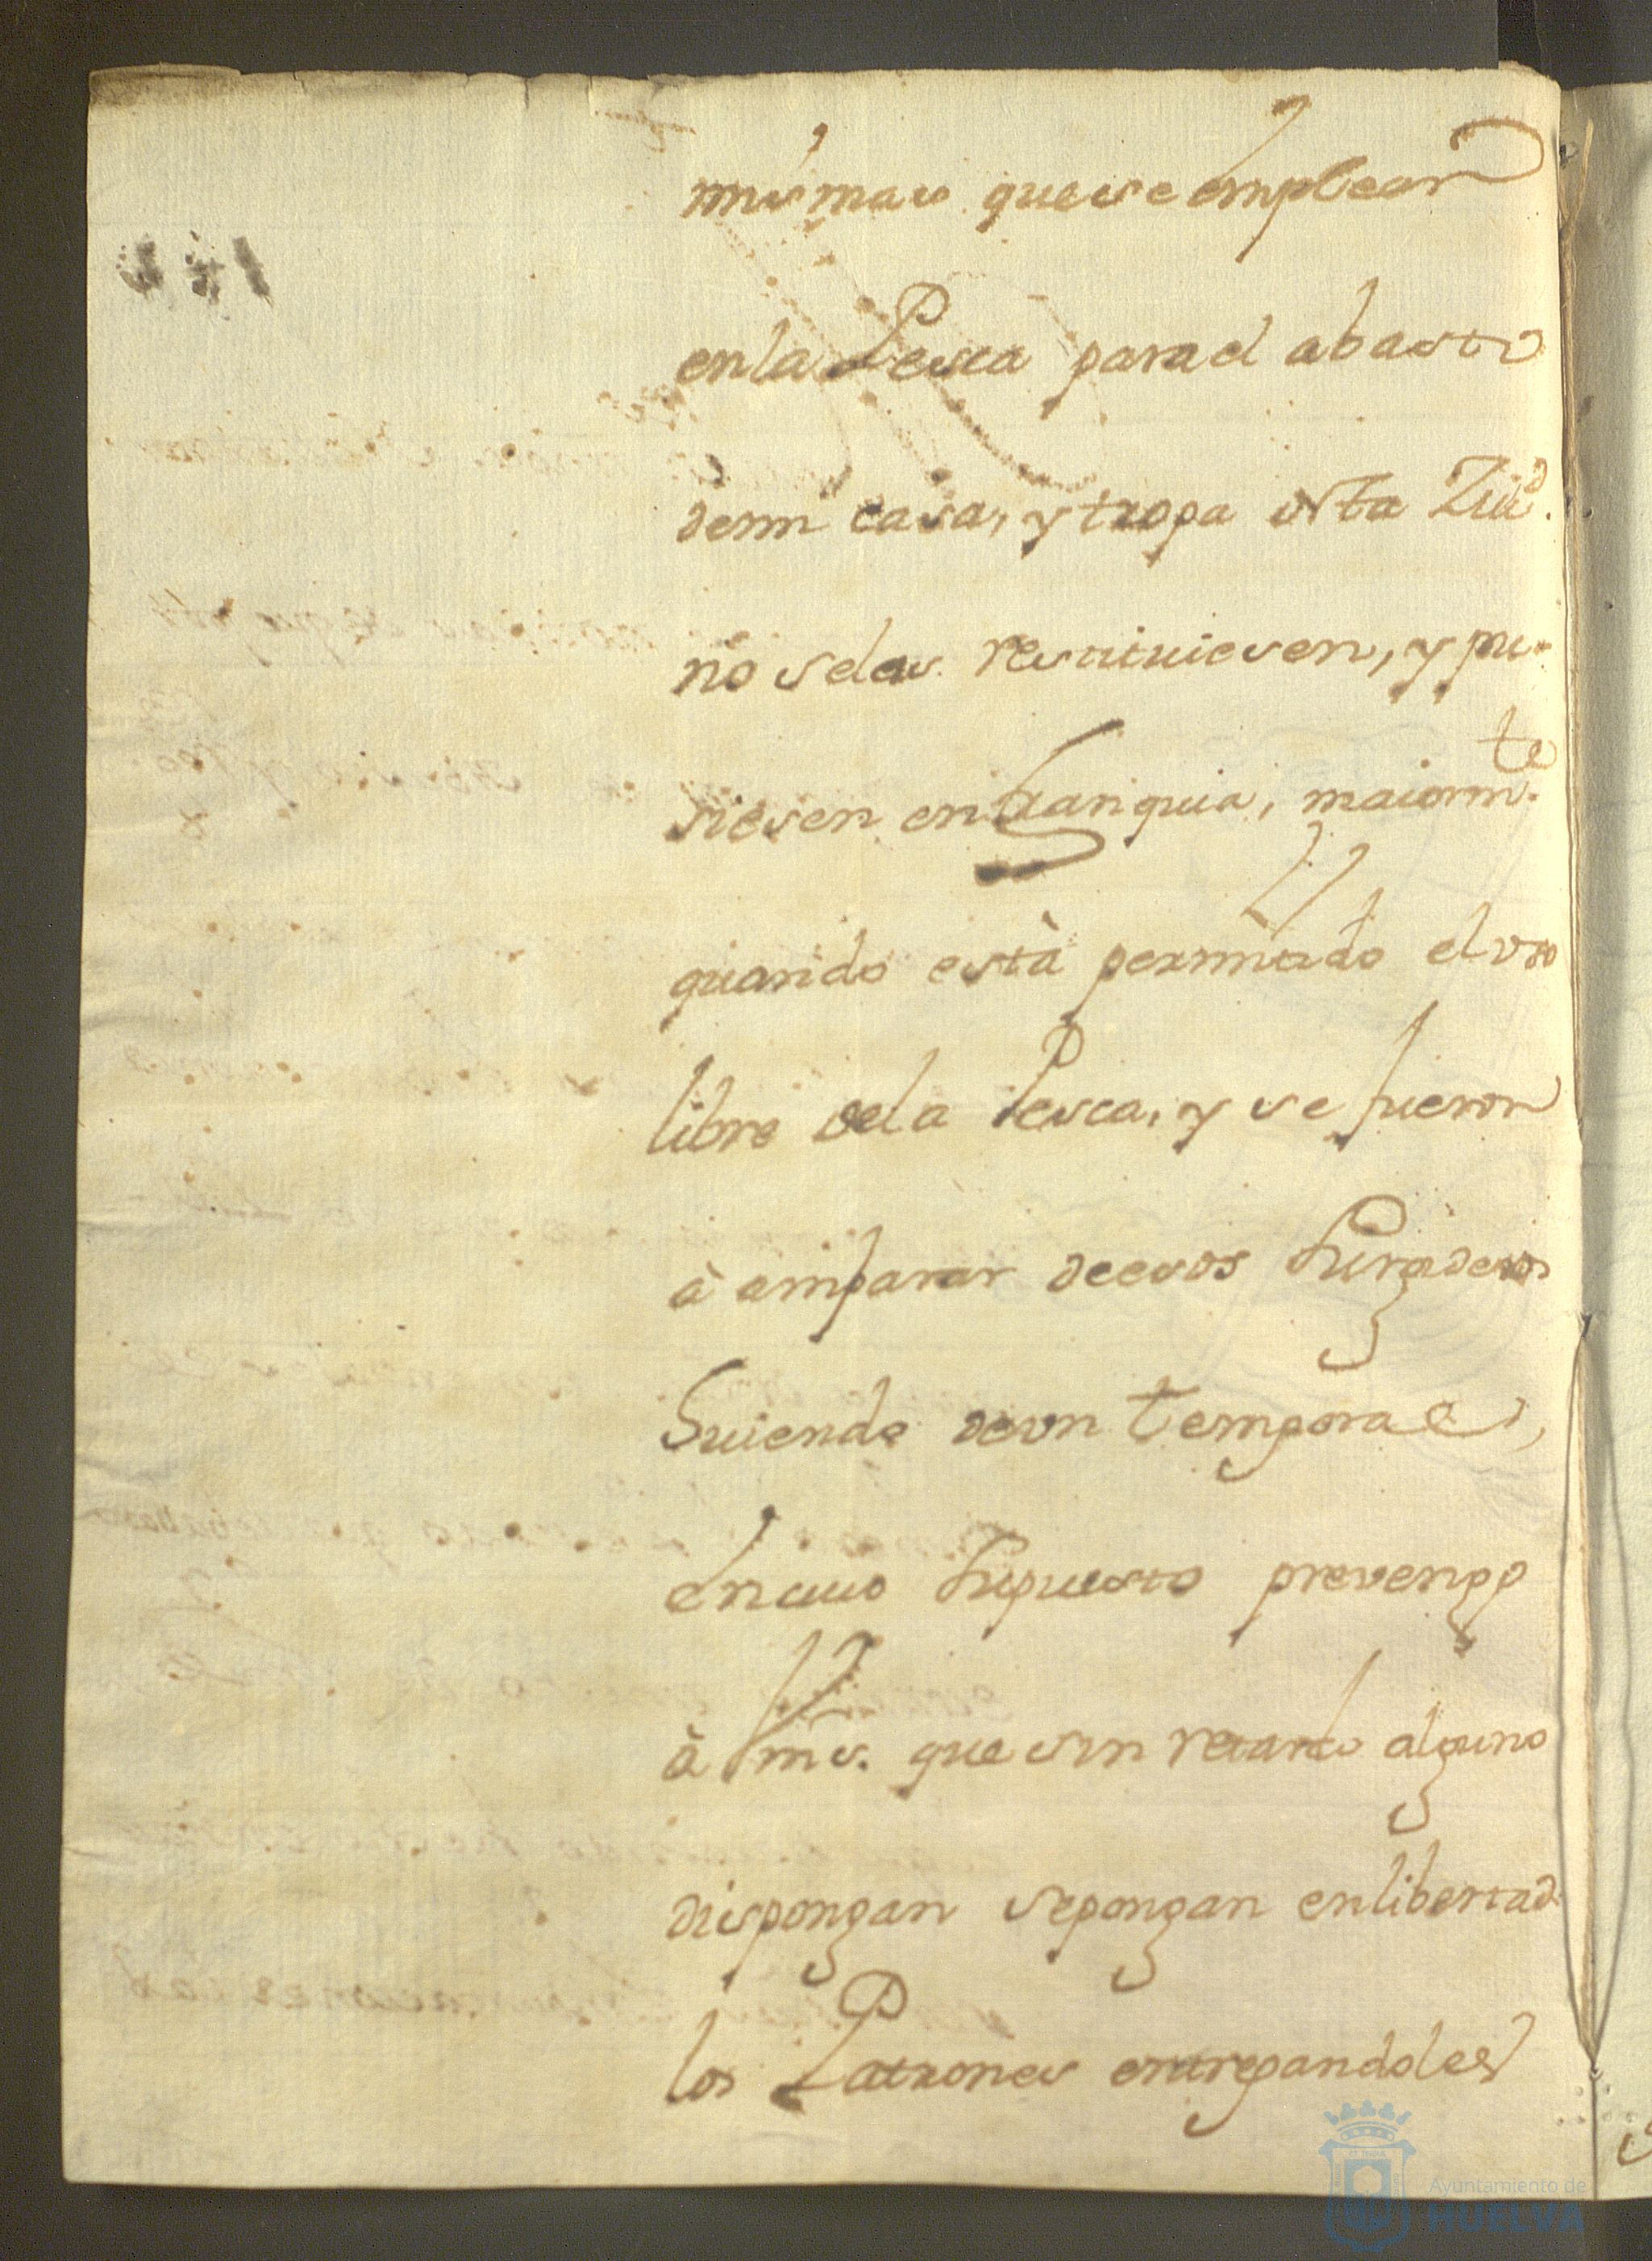 mismas que se emplean
en la Pesca para el abasto
de mi casa, y tropa desta Ziud.
no se les restituiesen, y pu-
siesen en franquia, maiormte.
quando està permitido el uso
libre de la Pesca, y se fueron
à amparar de esos Surgideros
Huiendo de un temporal,
en cuio supuesto prevengo
à Vms. que sin retardo alguno
dispongan se pongan en libertad
los Patrones entregandoles
Ayuntamiento de
HUELVA